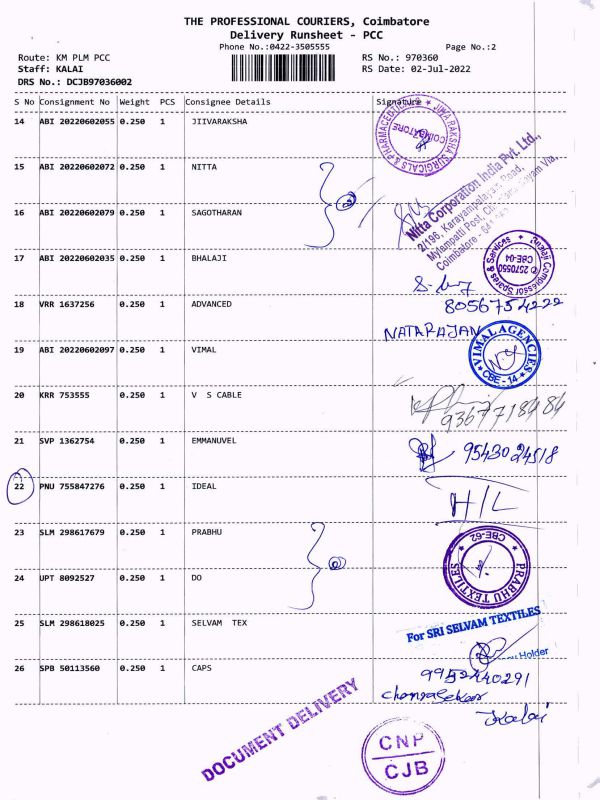 THE PROFESSIONAL COURIERS, Coimbatore
Delivery Runsheet - PCC
Phone No.:0422-3505555
Page No.:2
Route: KM PLM PCC
RS No.: 970360
Staff: KALAI
RS Date: 02-Jul-2022
DRS No.: DCJB97036002
S No Consignment No Weight PCS Consignee Details Signature
14 ABI 20220602055 0.250 1 JIIVARAKSHA
JIIVA RAKSHA SURGICALS & PHARMACEUTICALS
COIMBATORE
15 ABI 20220602072 0.250 1 NITTA
Nitta Corporation India Pvt. Ltd.,
2/196, Karayampalayam Road,
Mylampatti Post,
Coimbatore - 641
16 ABI 20220602079 0.250 1 SAGOTHARAN
17 ABI 20220602035 0.250 1 BHALAJI
Compressor Spares & Services
2570550
CBE-04
18 VRR 1637256 0.250 1 ADVANCED
8056754222
NATARAJAN
19 ABI 20220602097 0.250 1 VIMAL
VIMAL AGENCIES
CBE - 14
20 KRR 753555 0.250 1 V S CABLE
9367718484
21 SVP 1362754 0.250 1 EMMANUVEL
9543024518
22 PNU 755847276 0.250 1 IDEAL
H/L
23 SLM 298617679 0.250 1 PRABHU
CBE-62
PRABHU TEXTILES
24 UPT 8092527 0.250 1 DO
25 SLM 298618025 0.250 1 SELVAM TEX
For SRI SELVAM TEXTILES
Holder
26 SPB 50113560 0.250 1 CAPS
9952440291
Kalai
DOCUMENT DELIVERY
CNP
CJB